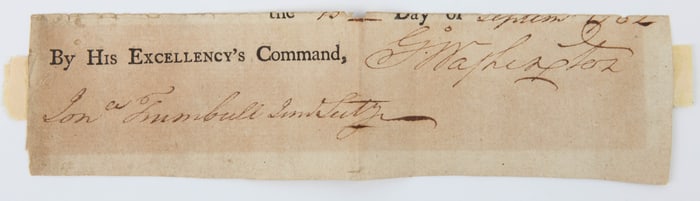 the 15 Day of Septemr 1782
By His Excellency's Command, Go Washington
Jona Trumbull Junr Secty